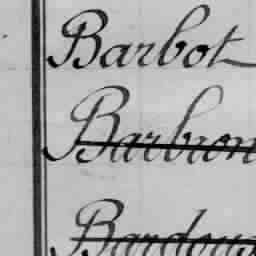 Barbot
Barbron
Bardoux